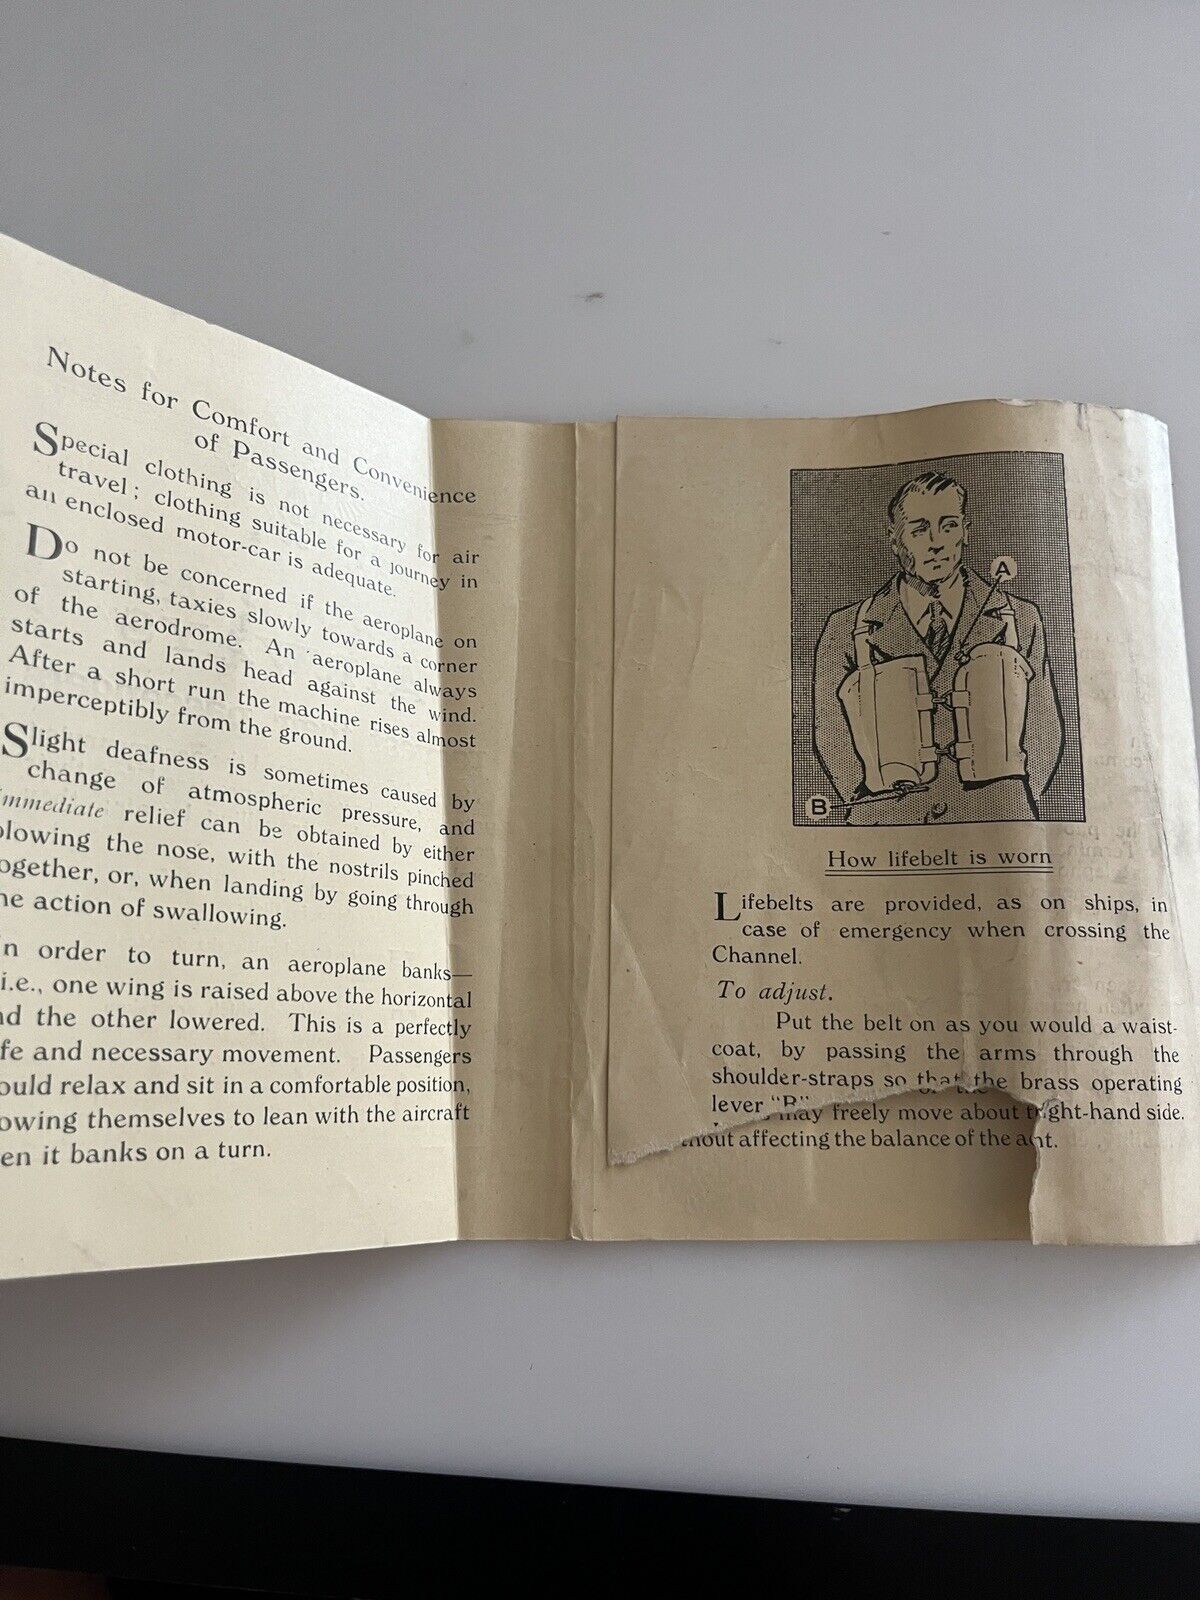 Notes for Comfort and Convenience
of Passengers.
Special clothing is not necessary for air
travel; clothing suitable for a journey in
an enclosed motor-car is adequate.
Do not be concerned if the aeroplane on
starting, taxies slowly towards a corner
of the aerodrome. An aeroplane always
starts and lands head against the wind.
After a short run the machine rises almost
imperceptibly from the ground.
Slight deafness is sometimes caused by
change of atmospheric pressure, and
immediate relief can be obtained by either
blowing the nose, with the nostrils pinched
together, or, when landing by going through
the action of swallowing.
In order to turn, an aeroplane banks—
i.e., one wing is raised above the horizontal
and the other lowered. This is a perfectly
safe and necessary movement. Passengers
should relax and sit in a comfortable position,
allowing themselves to lean with the aircraft
when it banks on a turn.
A
B
How lifebelt is worn
Lifebelts are provided, as on ships, in
case of emergency when crossing the
Channel.
To adjust.
Put the belt on as you would a waist-
coat, by passing the arms through the
shoulder-straps so that the brass operating
lever "B"
may freely move about
right-hand side.
affecting the balance of the